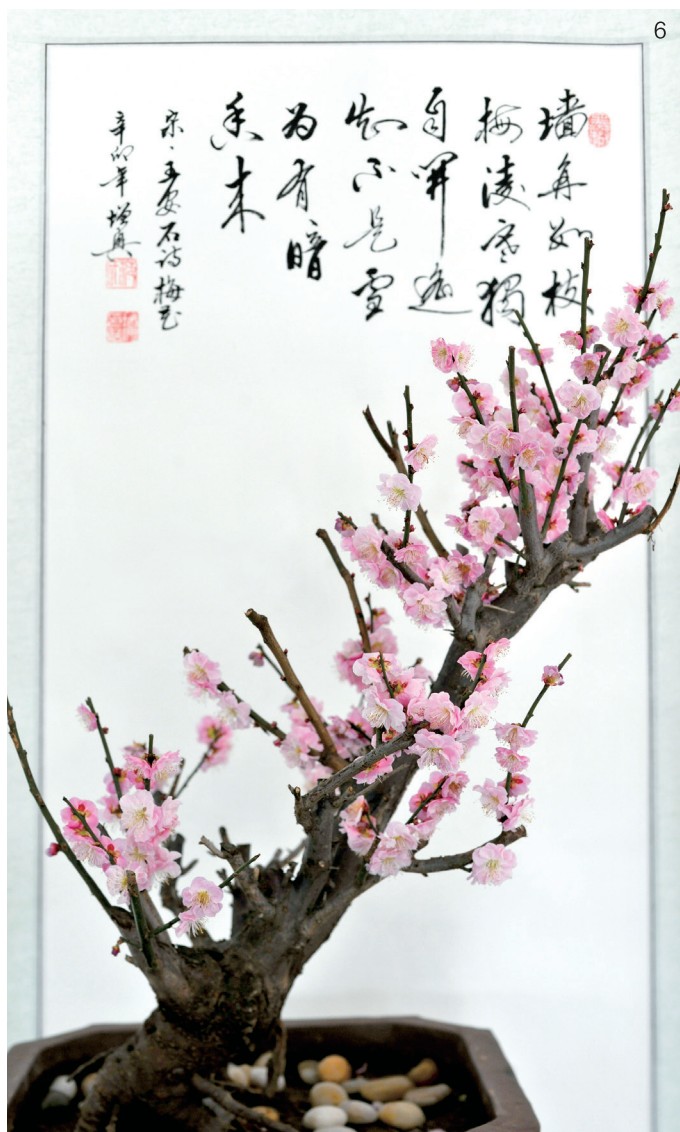 6
墙角数枝
梅凌寒獨
自開遥
知不是雪
为有暗
香来
宋、王安石诗梅花
辛卯年增興